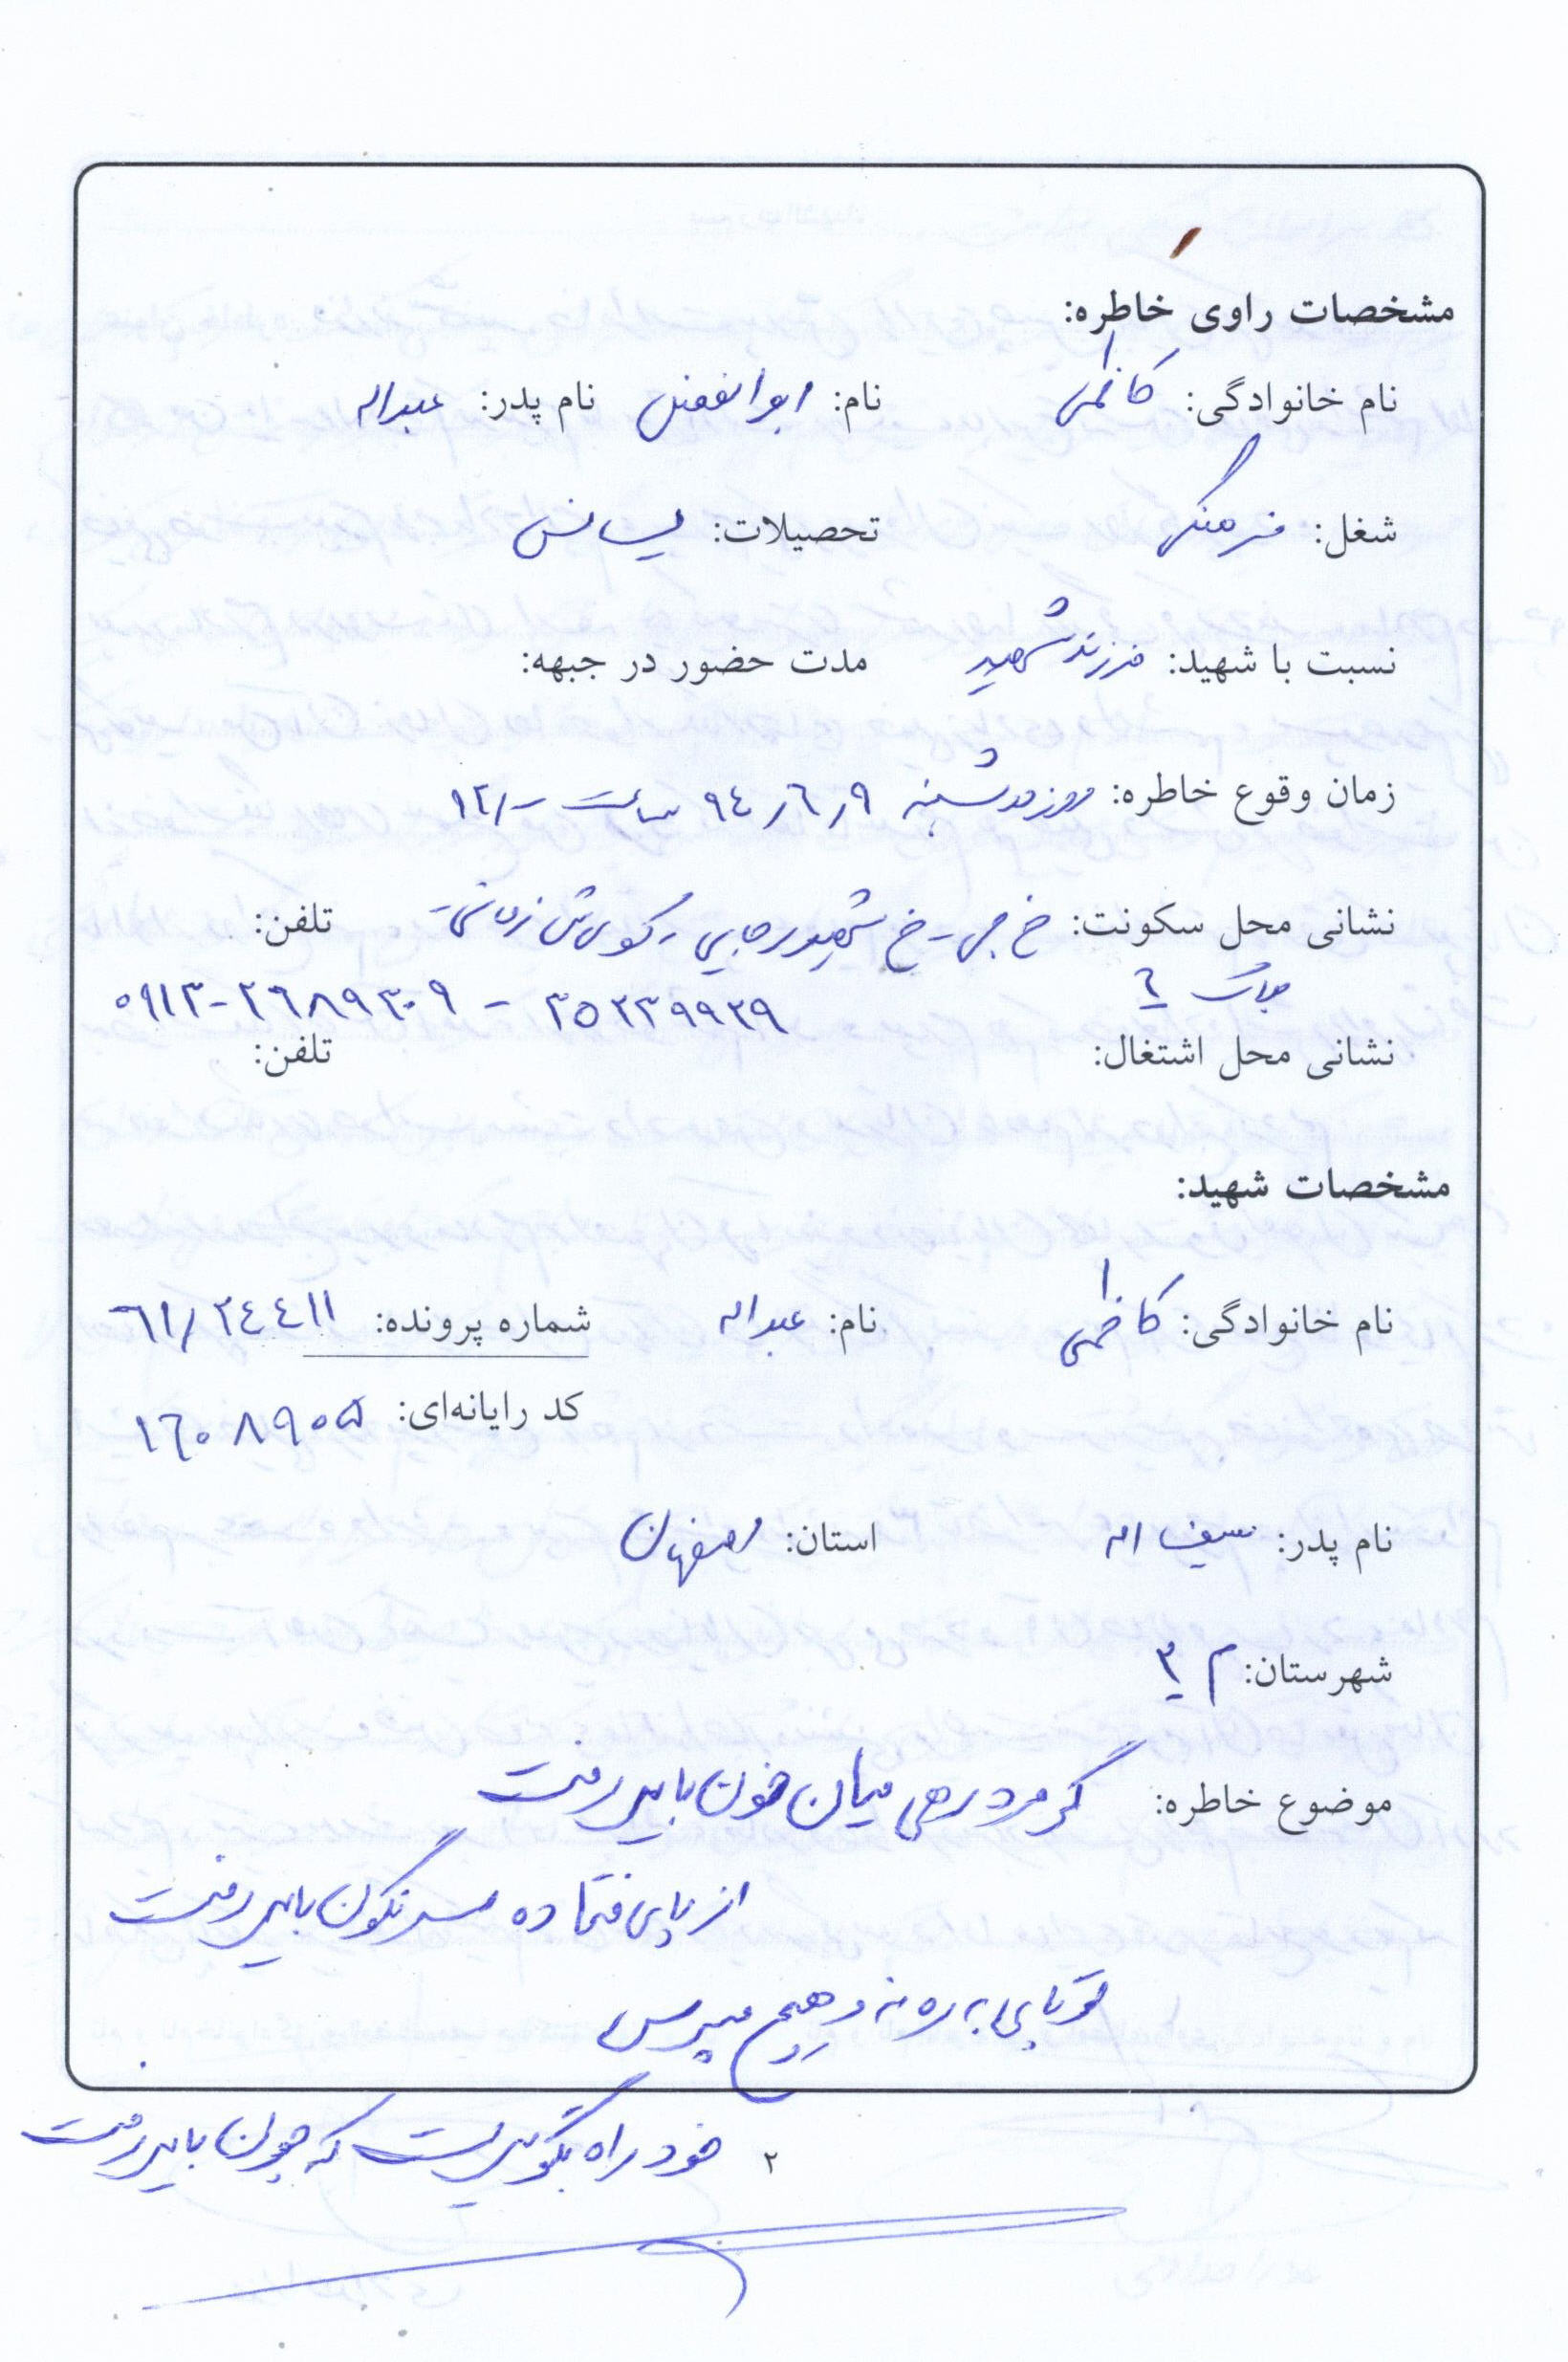 مشخصات راوی خاطره:
نام خانوادگی: کاظمی نام: ابوالفضل نام پدر: عبداله
شغل: فرهنگی تحصیلات: لیسانس
نسبت با شهید: فرزند شهید مدت حضور در جبهه:
زمان وقوع خاطره: روز دوشنبه ۹٤٫٦٫۹ ساعت ۱۲٫-
نشانی محل سکونت: خ جی - خ شهید رجایی - کوی ش زمانی - تلفن:
پلاک ٦ ۳۵۲۳۹۹۲۹ - ۰۹۱۳-۲٦۸۹۳۰۹
نشانی محل اشتغال: تلفن:
مشخصات شهید:
نام خانوادگی: کاظمی نام: عبداله شماره پرونده: ٦۱/۲٤٤۱۱
کد رایانه‌ای: ۱٦۰۸۹۰۵
نام پدر: سیف اله استان: اصفهان
شهرستان: م ۳
موضوع خاطره: گر مرد رهی میان خون باید رفت
از پای فتاده سرنگون باید رفت
تو پای به ره نه و هیچ مپرس
خود راه بگویدت که چون باید رفت
۲